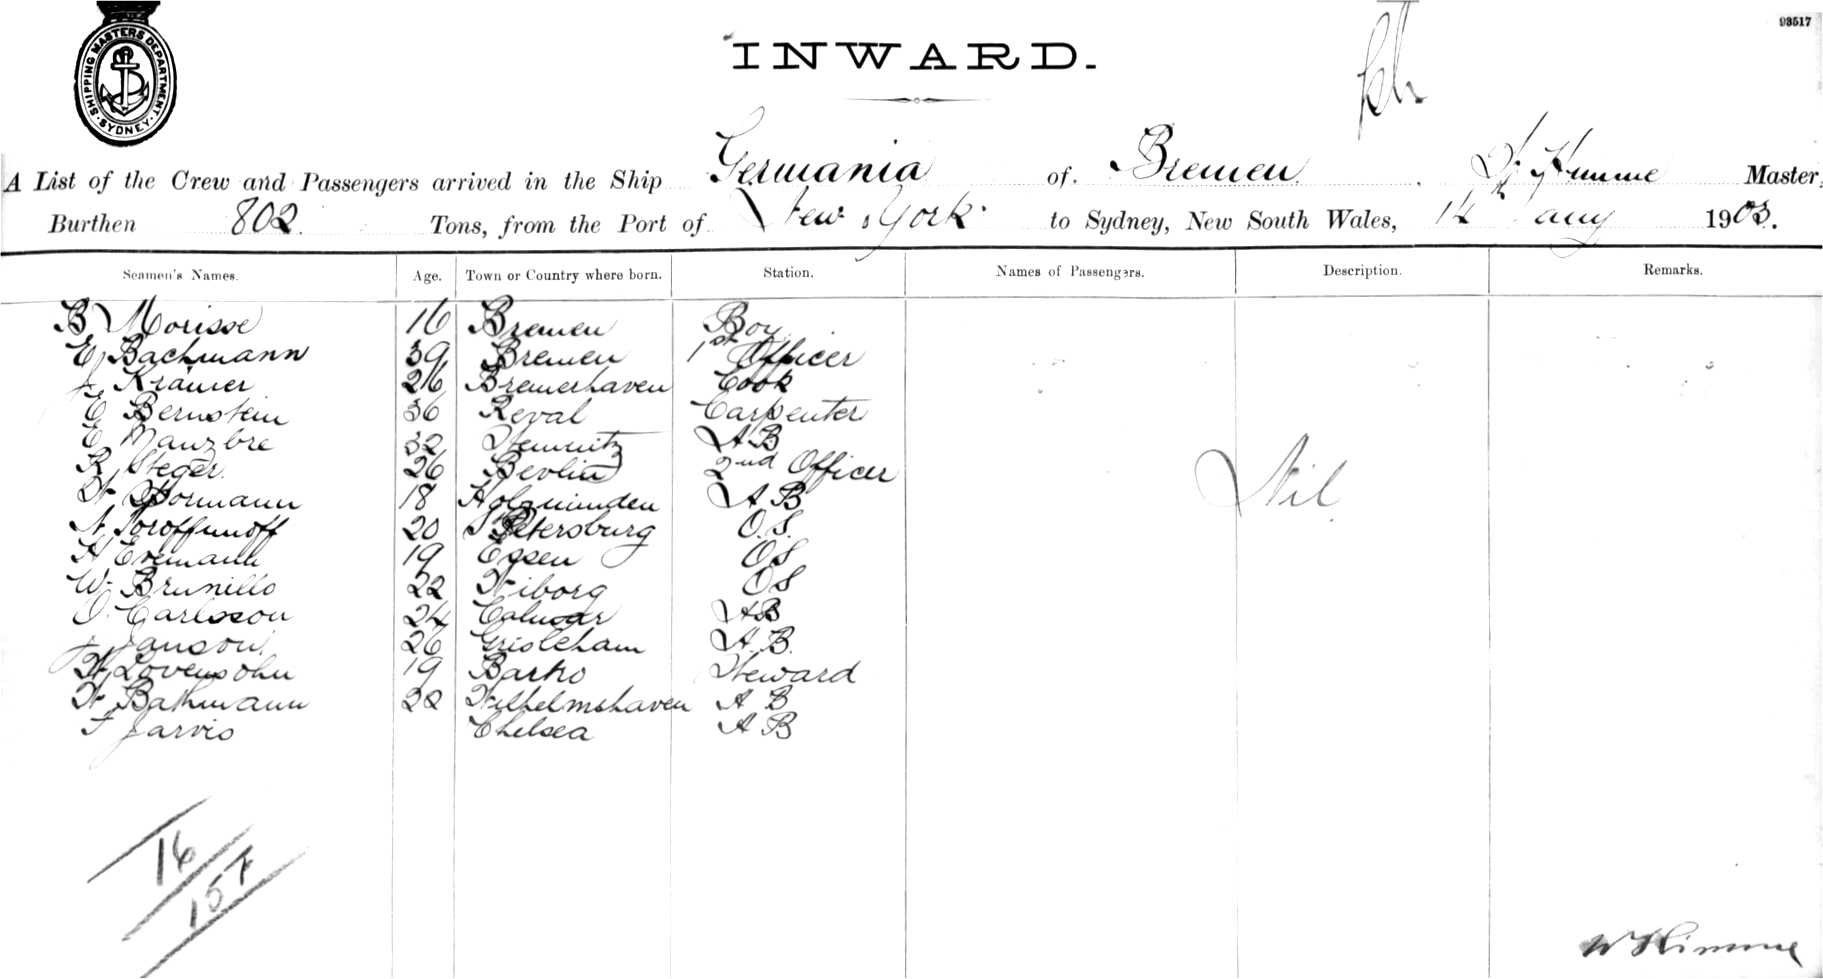 93517
SHIPPING MASTERS DEPARTMENT. SYDNEY.
INWARD.
A List of the Crew and Passengers arrived in the Ship Germania of Bremen Master,
Burthen 802 Tons, from the Port of New York to Sydney, New South Wales, 14th Aug 1903.
Seamen's Names. Age. Town or Country where born. Station. Names of Passengers. Description. Remarks.
B Morisse 16 Bremen Boy
E Bachmann 39 Bremen 1st Officer
J Krämer 26 Bremerhaven Cook
E Bernstein 36 Reval Carpenter
E Manzbre 32 AB
R Steger 26 Berlin 2nd Officer
Nil
18 Holzminden AB
20 St Petersburg O.S.
H Evemann 19 Essen OS
W. Brunillo 22 Wiborg OS
O. Carlsson 24 Calmar AB
J Janson 26 Grisleham A.B.
Lovensohn 19 Steward
W Bathmann 22 Wilhelmshaven AB
F Jarvis Chelsea AB
16
15